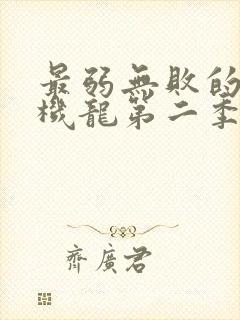 最弱無敗的
機龍第二季
齊廣君